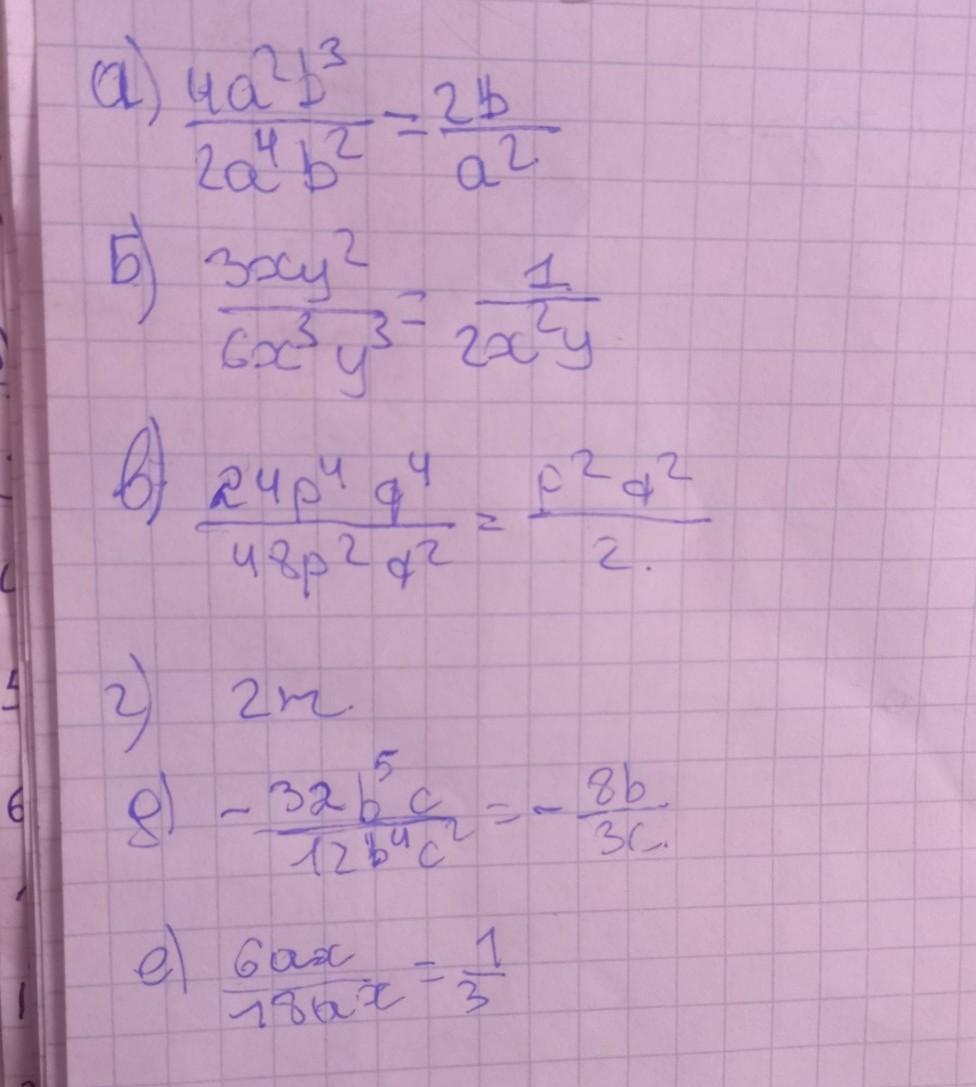 а) 4a²b³ / 2a⁴b² = 2b / a²
Б) 3xy² / 6x³y³ = 1 / 2x²y
в) 24p⁴q⁴ / 48p²q² = p²q² / 2.
г) 2m.
д) - 32b⁵c / 12b⁴c² = - 8b / 3c.
е) 6ax / 18ax = 1 / 3